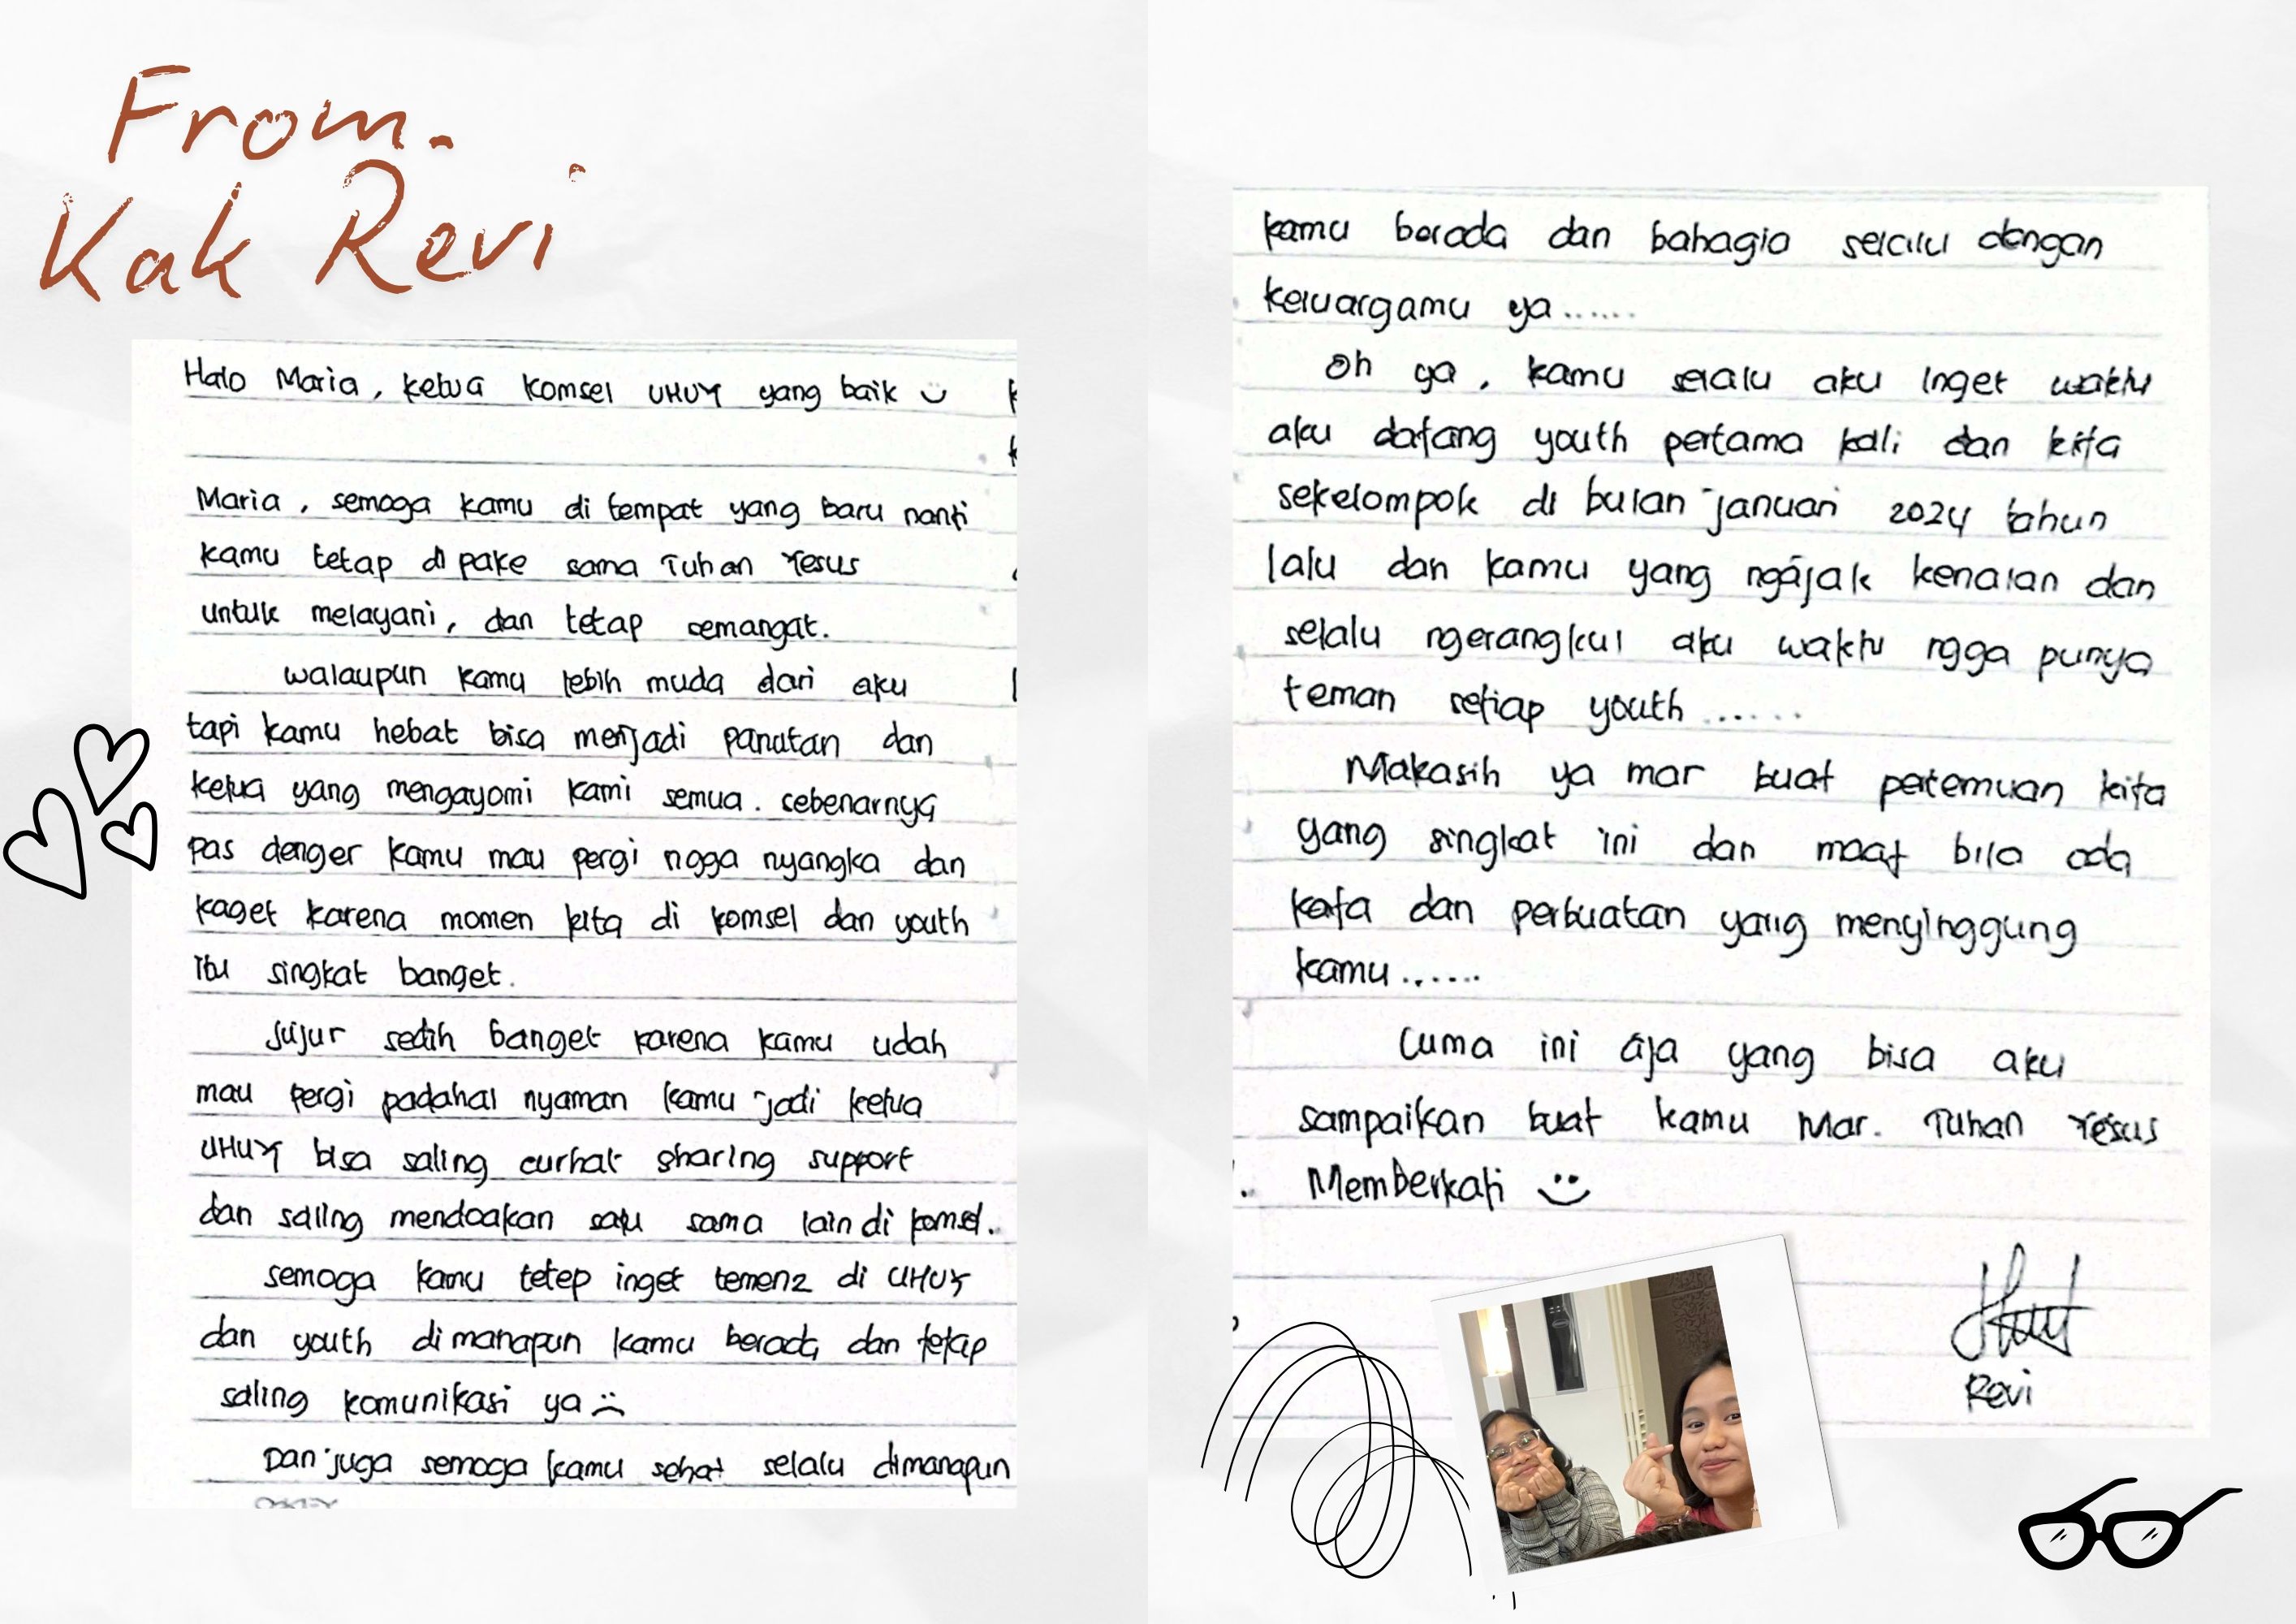 From.
Kak Revi
Halo Maria, ketua komsel UHUY yang baik
Maria, semoga kamu di tempat yang baru nanti
kamu tetap di pake sama Tuhan Yesus
untuk melayani, dan tetap semangat.
walaupun kamu lebih muda dari aku
tapi kamu hebat bisa menjadi panutan dan
ketua yang mengayomi kami semua. sebenarnya
pas denger kamu mau pergi ngga nyangka dan
kaget karena momen kita di komsel dan youth
itu singkat banget.
Jujur sedih banget karena kamu udah
mau pergi padahal nyaman kamu jadi ketua
UHUY bisa saling curhat sharing support
dan saling mendoakan satu sama lain di komsel.
semoga kamu tetep inget temenz di UHUY
dan youth dimanapun kamu berada dan tetap
saling komunikasi ya
Dan juga semoga kamu sehat selalu dimanapun
kamu berada dan bahagia selalu dengan
keluargamu ya......
Oh ya, kamu selalu aku inget waktu
aku datang youth pertama kali dan kita
sekelompok di bulan januari 2024 tahun
lalu dan kamu yang ngajak kenalan dan
selalu ngerangkul aku waktu ngga punya
teman setiap youth......
Makasih ya mar buat pertemuan kita
yang singkat ini dan maaf bila ada
kata dan perbuatan yang menyinggung
kamu......
Cuma ini aja yang bisa aku
sampaikan buat kamu Mar. Tuhan Yesus
Memberkati
Revi